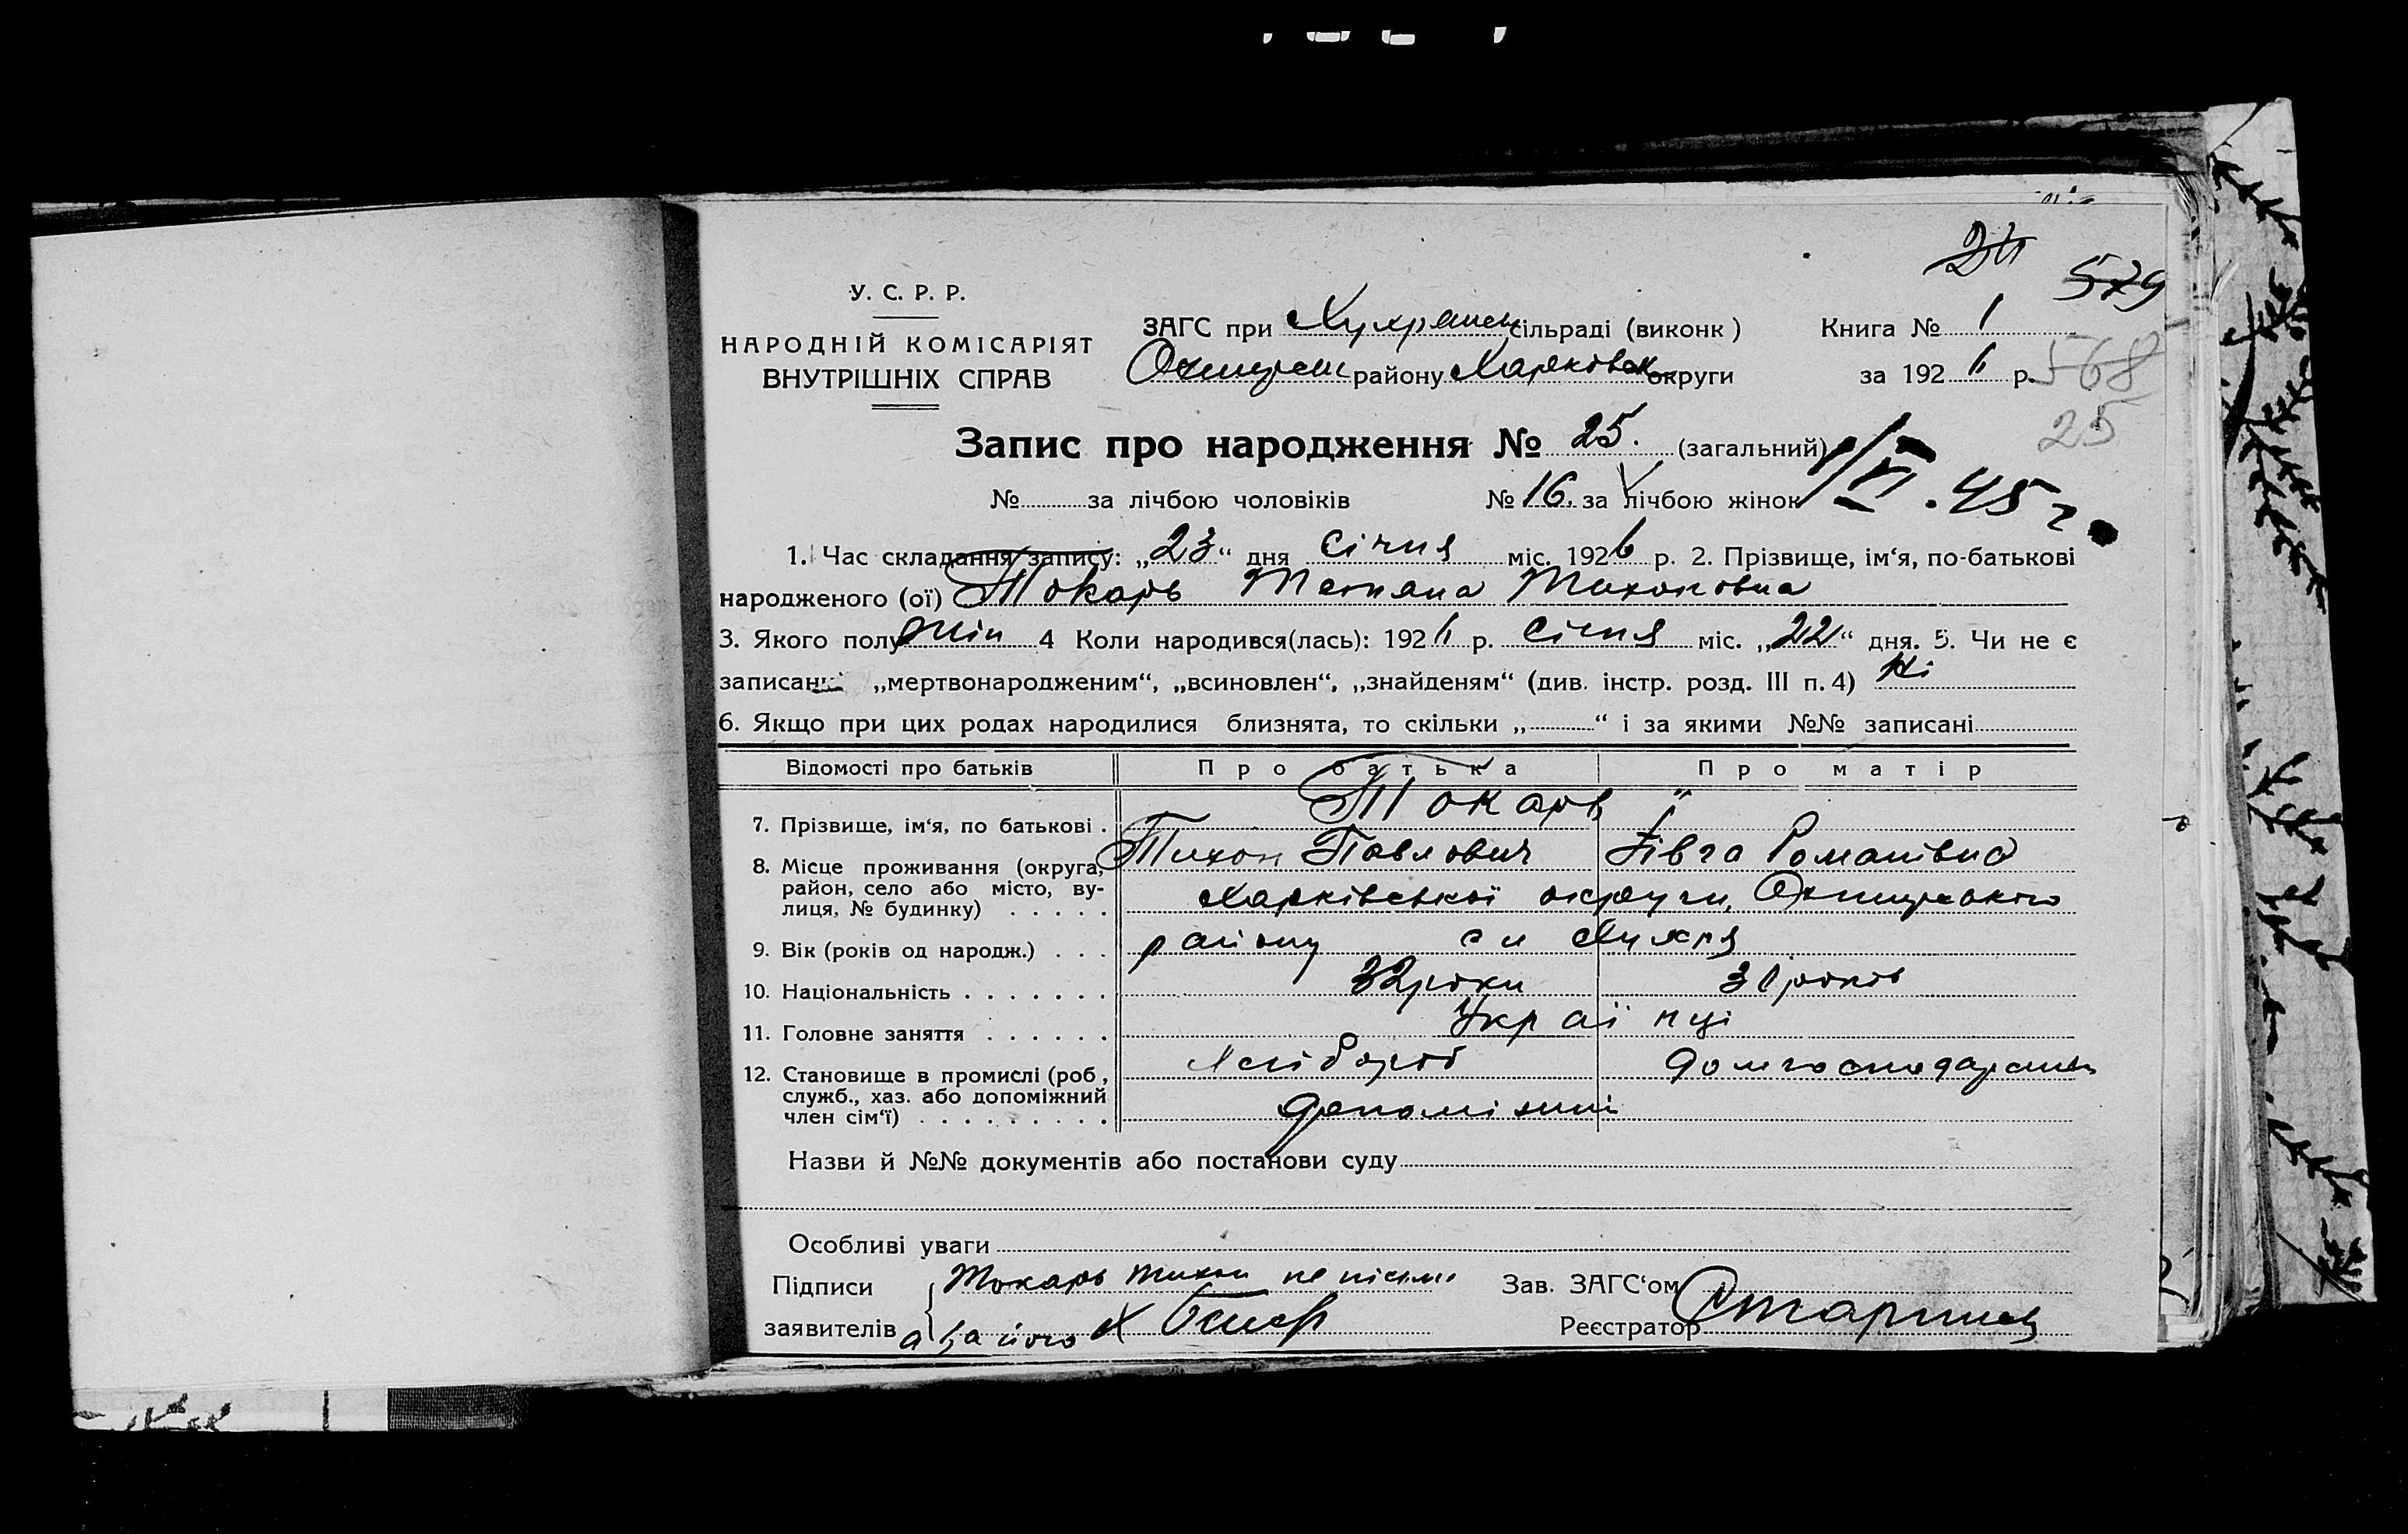 24
579
У. С. Р. Р.
НАРОДНІЙ КОМІСАРІЯТ
ВНУТРІШНІХ СПРАВ
ЗАГС при Хухранск сільраді (виконк)
Охтирськ району Харківськ округи
Книга № 1
за 1926 р.
568
25
Запис про народження № 25. (загальний)
№ за лічбою чоловіків № 16. за лічбою жінок
1/VI.45 г.
1. Час складання запису: „23“ дня січня міс. 1926 р. 2. Прізвище, ім‘я, по-батькові
народженого (ої) Токарь Тетяна Тихоновна
3. Якого полу жін 4 Коли народився(лась): 1926 р. січня міс. „22“ дня. 5. Чи не є
записані „мертвонародженим“, „всиновлен“, „знайденям“ (див. інстр. розд. III п. 4) ні
6. Якщо при цих родах народилися близнята, то скільки „ “ і за якими №№ записані
Відомості про батьків Про батька Про матір
7. Прізвище, ім‘я, по батькові . Токарь "
Тихон Павлович Гівга Романівна
8. Місце проживання (округа, район, село або місто, ву-
лиця, № будинку) . . . . . Харківської округи, Охтирського
району с. Хухря
9. Вік (років од народж.) . . . 32 роки 31 років
10. Національність . . . . . . . Українці
11. Головне заняття . . . . . . Хлібороб домгосподарств
12. Становище в промислі (роб., служб., хаз. або допоміжний
член сім‘ї) . . . . . . . . . допоміжний
Назви й №№ документів або постанови суду
Особливі уваги
Підписи Токарь Тихон не письм.
заявителів а за його
Зав. ЗАГС‘ом
Реєстратор